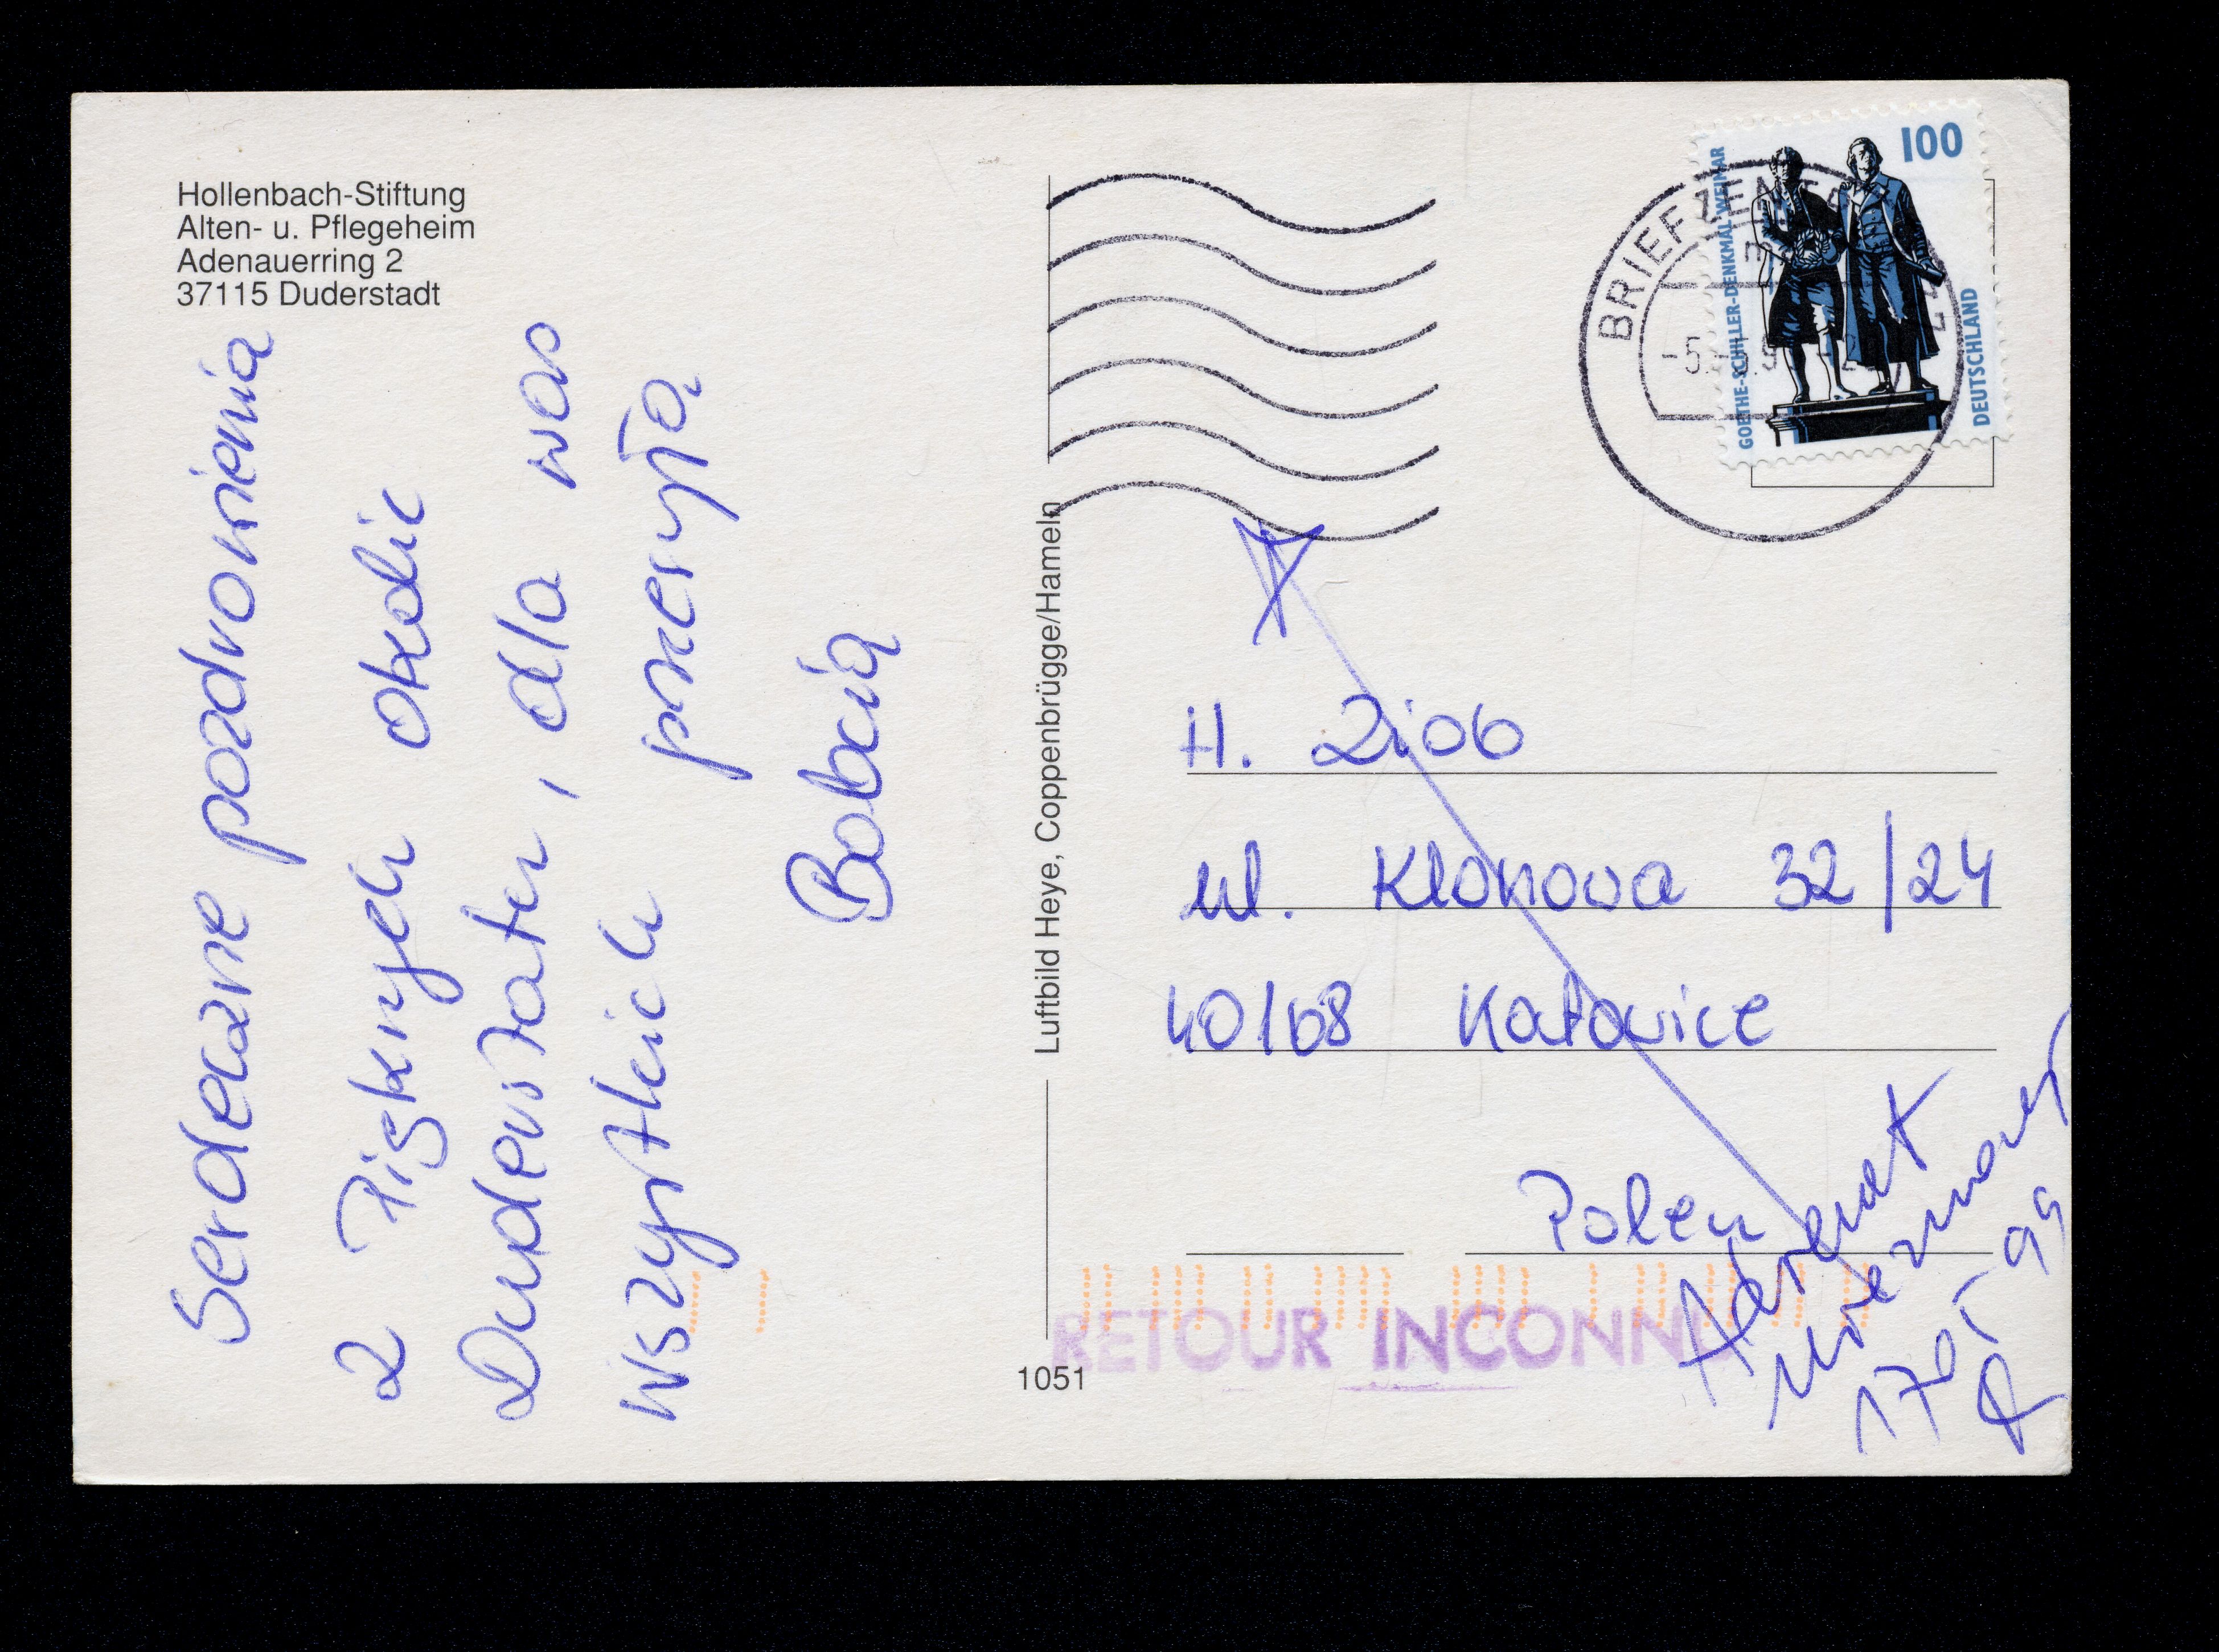 Hollenbach-Stiftung
Alten- u. Pflegeheim
Adenauerring 2
37115 Duderstadt
Serdeczne pozdrowienia
z Pięknych okolic
Duderstatu, dla was
wszystkich przesyła
Babcia
Luftbild Heye, Coppenbrügge/Hameln
1051
100
GOETHE-SCHILLER-DENKMAL WEIMAR
DEUTSCHLAND
BRIEFZENT
-5.
H. Ziob
ul. Klonowa 32/24
40168 Katowice
Polen
RETOUR INCONNU
Adresat
nieznany
99